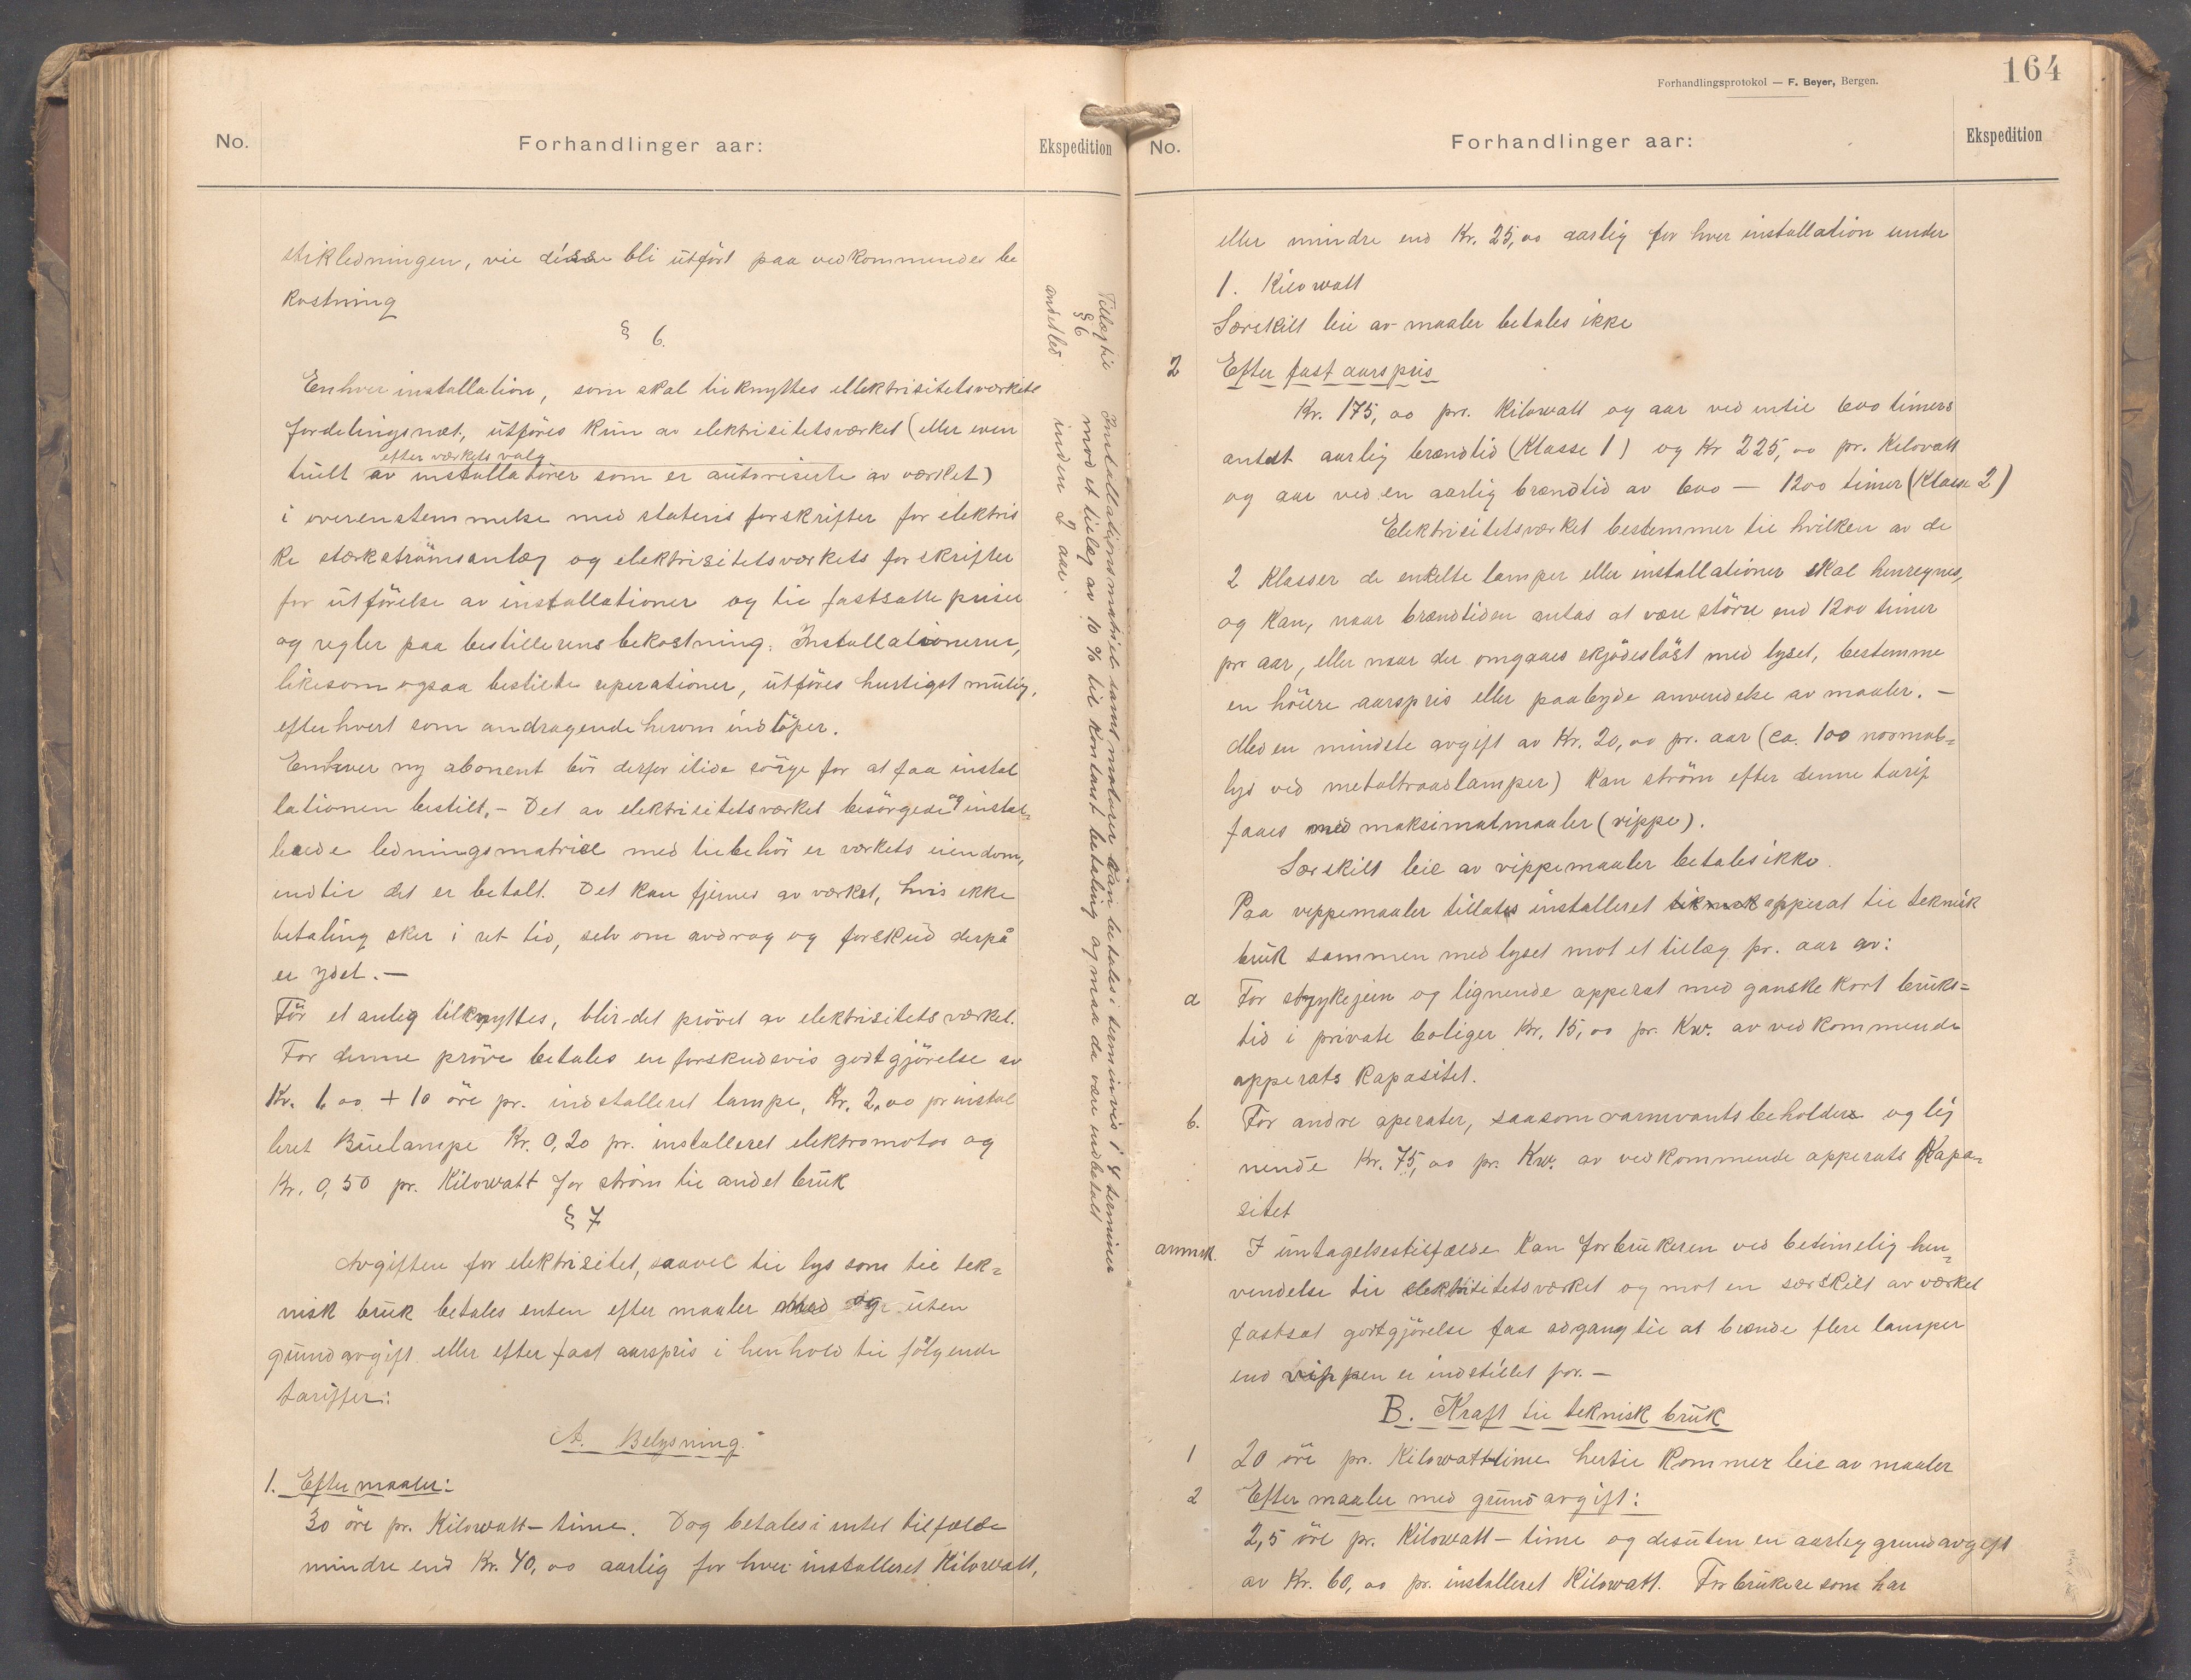 No.
Forhandlinger aar:
Ekspedition
stikledningen, vil disse bli utført paa vedkommendes be
kostning
§ 6.
Enhver installation, som skal tilknyttes ellektrisitetsverkets
fordelingsnæt, utføres kun av elektrisitetsværket (eller even
efter værkets valg
tuelt av installatører som er autoriserte av værket)
i overenstemmelse med statens forskrifter for elektris
ke sterkstrømsanlæg og elektrisitetsværkets forskrifter
for utførelse av installationer og til fastsatte priser
og regler paa bestillerens bekostning. Installationerne,
likesom ogsaa bestilte reperationer, utføres hurtigst mulig,
efterhvert som andragende herom indløper.
Enhver ny abonent bør derfor itide sørge for at faa instal
lationen bestilt. - Det av elektrisitetsværket besørgede og instal-
lerede ledningsmatriel med tilbehør er værkets eiendom,
indtil det er betalt. Det kan fjernes av værket, hvis ikke
betaling sker i ret tid, selv om avdrag og forskud derpå
er ydet. —
Før et anleg tilknyttes, blir det prøvet av elektrisitetsværket.
For denne prøve betales en forskudsvis godtgjørelse av
Kr. 1,00 + 10 øre pr. indstalleret lampe, Kr. 2,00 pr instal
leret Buelampe Kr. 0,20 pr. installeret elektromotor og
Kr. 0,50 pr. Kilowatt for strøm til andet bruk
§ 7
Avgiften for elektrisitet, saavel til lys som til tek=
nisk bruk betales enten efter maaler med og uten
grundavgift eller efter fast aarspris i henhold til følgende
tariffer:
A. Belysning.
1. Efter maaler:
30 øre pr. Kilowatt-time. Dog betales i intet tilfælde
mindre end Kr. 40,00 aarlig for hver installeret Kilowatt,
Tillæg til
§ 6
andet led
Installationsmatriel samt maalere kan betales i terminvis i 4 terminer
mod et tillæg av 10 % til kontant betaling og maa da være indbetalt
inden 2 aar.
Forhandlingsprotokol — F. Beyer, Bergen.
164
No.
Forhandlinger aar:
Ekspedition
eller mindre end Kr. 25,00 aarlig for hver installation under
1. Kilowatt
Særskilt leie av maaler betales ikke
2 Efter fast aarspris
Kr. 175,00 pr. Kilowatt og aar ved intil 600 timers
antat aarlig brændtid (Klasse 1) og Kr 225,00 pr. Kilovatt
og aar ved en aarlig brændtid av 600 — 1200 timer (Klasse 2)
Elektrisitetsværket bestemmer til hvilken av de
2 Klasser de enkelte lamper eller installationer skal henregnes,
og kan, naar brændtiden antas at være større end 1200 timer
pr aar, eller naar der omgaaes skjødesløst med lyset, bestemme
en høiere aarspris eller paabyde anvendelse av maaler. —
Med en mindste avgift av Kr. 20,00 pr. aar (ca. 100 normal=
lys ved metaltraadlamper) kan strøm efter denne tarif
faaes med maksimalmaaler (vippe).
Særskilt leie av vippemaaler betales ikke.
Paa vippemaaler tillates installeret teknisk apperat til teknisk
bruk sammen med lyset mot et tillæg pr. aar av:
a For strykejern og lignende apperat med ganske kort bruks=
tid i private boliger Kr. 15,00 pr. Kw. av vedkommende
apperats kapasitet.
b. For andre aperater, saasom varmvantsbeholdere og lig
nende Kr. 75,00 pr. Kw. av vedkommende apperats Kapa-
sitet
anmrk. I untagelsestilfælde kan forbrukeren ved betimelig hen=
vendelse til elektrisitetsværket og mot en særskilt av værket
fastsat godtgjørelse faa adgang til at brænde flere lamper
end vippen er indstillet for. —
B. Kraft til teknisk bruk
1 20 øre pr. Kilowatttime hertil kommer leie av maaler
2 Efter maaler med grundavgift:
2,5 øre pr. Kilowatt - time og desuten en aarlig grundavgift
av Kr. 60,00 pr. installeret Kilowatt. Forbrukere som har